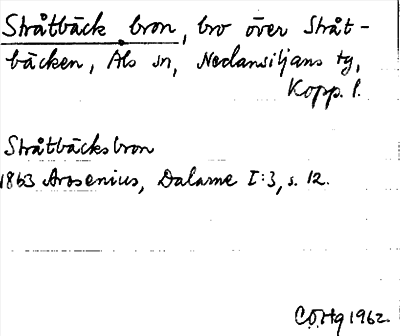 Stråtbäck bron, bro över Stråt-
bäcken, Als sn, Nedansiljans tg,
Kopp. l.
Stråtbäcksbron
1863 Arosenius, Dalarne I:3, s. 12.
C.O.Htg 1962.